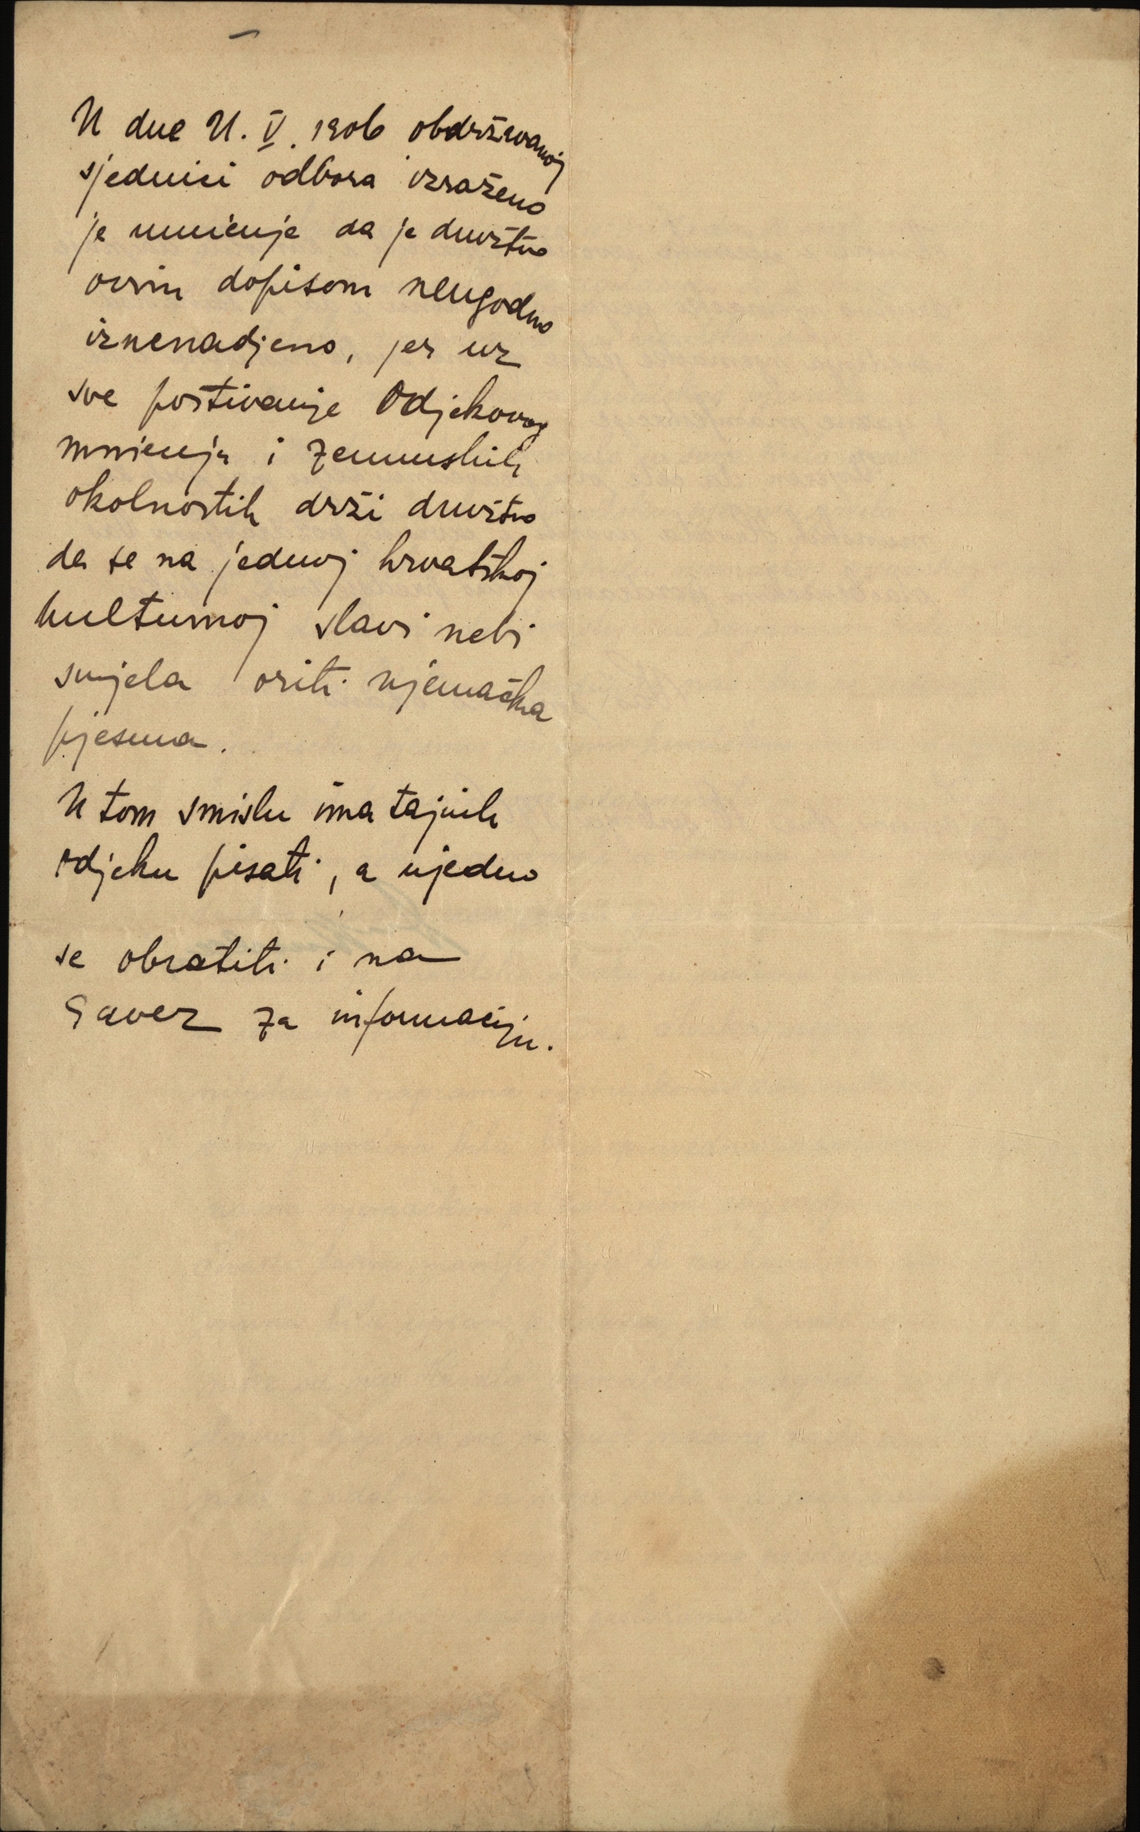 U dne 21. V. 1906 obdržavanoj
sjednici odbora izraženo
je mnienje da je družtvo
ovim dopisom neugodno
iznenadjeno, jer uz
sve poštivanje Odjekovog
mnienja i zemunskih
okolnostih drži družtvo
da se na jednoj hrvatskoj
kulturnoj slavi nebi
smjela oriti njemačka
pjesma.
U tom smislu ima tajnik
Odjeku pisati, a ujedno
se obratiti i na
Savez za informaciju.